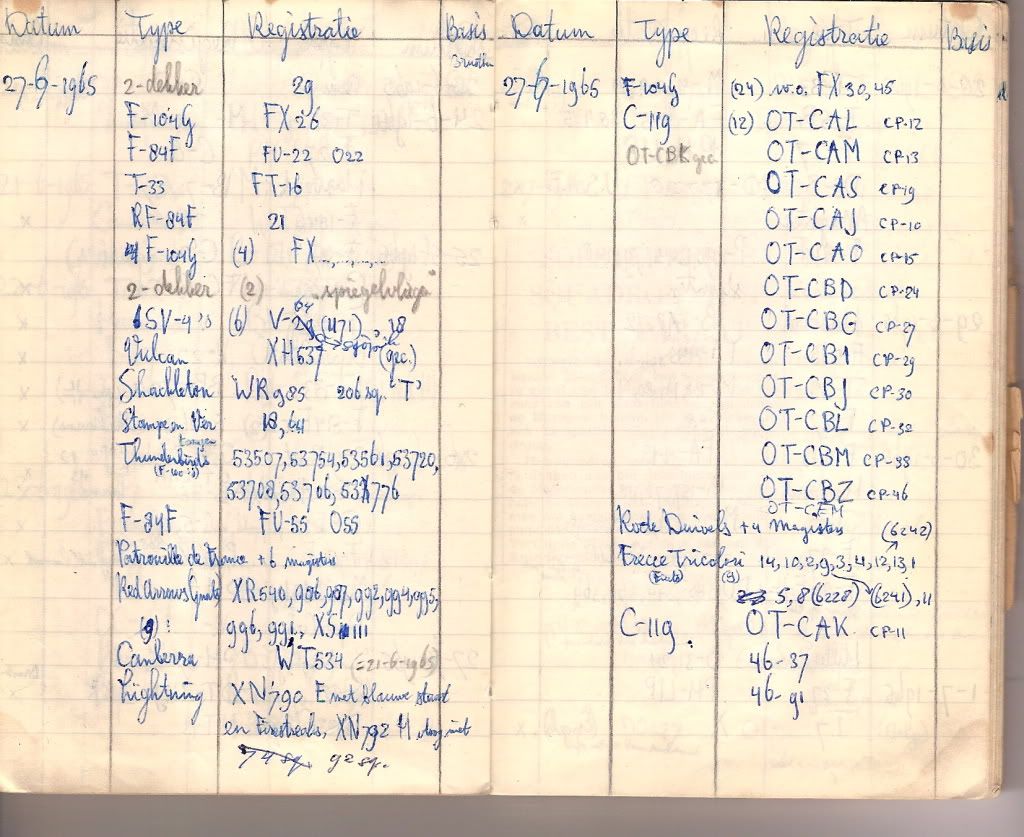 Datum Type Registratie Basis
27-6-1965 2-dekker 29
F-104G FX-26
F-84F FU-22 022
T-33 FT-16
RF-84F 21
F-104G (4) FX
2-dekker (2) "spiegelvlucht"
6 SV-4's (6) V-64 (1171) , 18
Vulcan XH537 (gec.)
Shackleton WR985 206 sq. 'T'
Stampe en Ver 18, 44
Thunderbirds (F-100's) 53507, 53754, 53561, 53720,
53708, 53706, 53776
F-84F FU-55 055
Patrouille de France + 6 magisters
Red Arrows (gnats) XR540, 986, 987, 992, 994, 995,
(9): 996, 991, XS111
Canberra WT534 (=21-6-1965)
Lightning XN790 E met blauwe staart
en Firestreaks, XN792 M vloog niet
74 sq. 92 sq.
Datum Type Registratie Basis
27-6-1965 F-104G (24) w.o. FX 30, 45
C-119 (12) OT-CAL CP-12
OT-CBK gec OT-CAM CP-13
OT-CAS CP-19
OT-CAJ CP-10
OT-CAO CP-15
OT-CBD CP-24
OT-CBG CP-27
OT-CBI CP-29
OT-CBJ CP-30
OT-CBL CP-32
OT-CBM CP-33
OT-CBZ CP-46
OT-CEM
Rode Duivels + 4 Magisters (6242)
Frecce Tricolori (9) 14, 10, 2, 9, 3, 4, 12, 13, 1
5, 8 (6228) (6241), 11
C-119 . OT-CAK CP-11
46-37
46-91